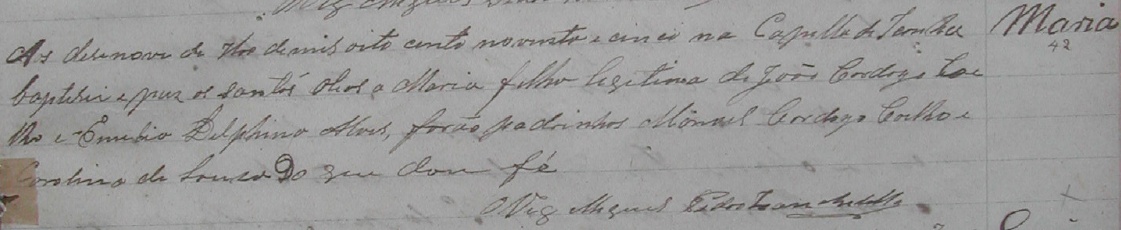 Maria
42
As desenove de 7bro de mil oito cento noventa e cinco na Capella de
baptisei e puz os santos oleos a Maria filha legitima de João Cardozo Coe
lho e Emidia Delphina Alves, forão padrinhos Manuel Cardozo Coelho e
Carolina de Souza Do que dou fé
O Vig Miguel Pedro